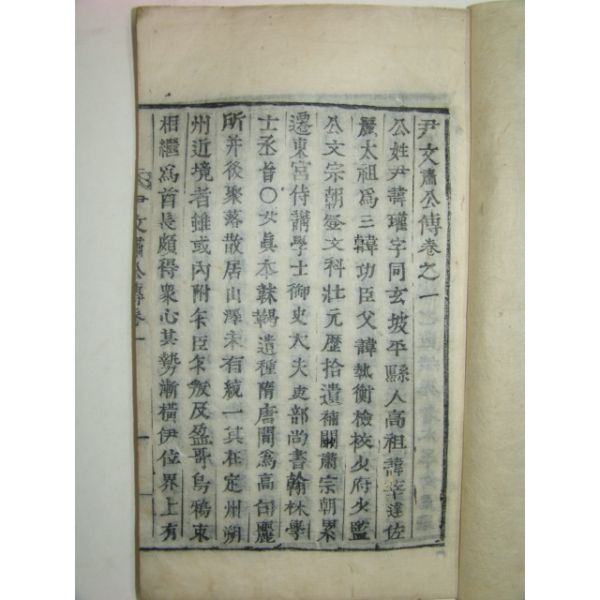 尹文肅公傳卷之一
公姓尹諱瓘字同玄坡平縣人高祖諱莘達佐
麗太祖爲三韓功臣父諱執衡檢校少府少監
公文宗朝登文科壯元歷拾遺補闕肅宗朝累
遷東宮侍講學士御史大夫吏部尚書翰林學
士丞旨〇女眞本靺鞨遺種隋唐間爲高句麗
所并後聚落散居山澤未有統一其在定州朔
州近境者雖或內附乍臣乍叛及盈哥烏鴉束
相繼爲酋長頗得衆心其勢漸橫伊位界上有
尹文肅公傳卷一
一